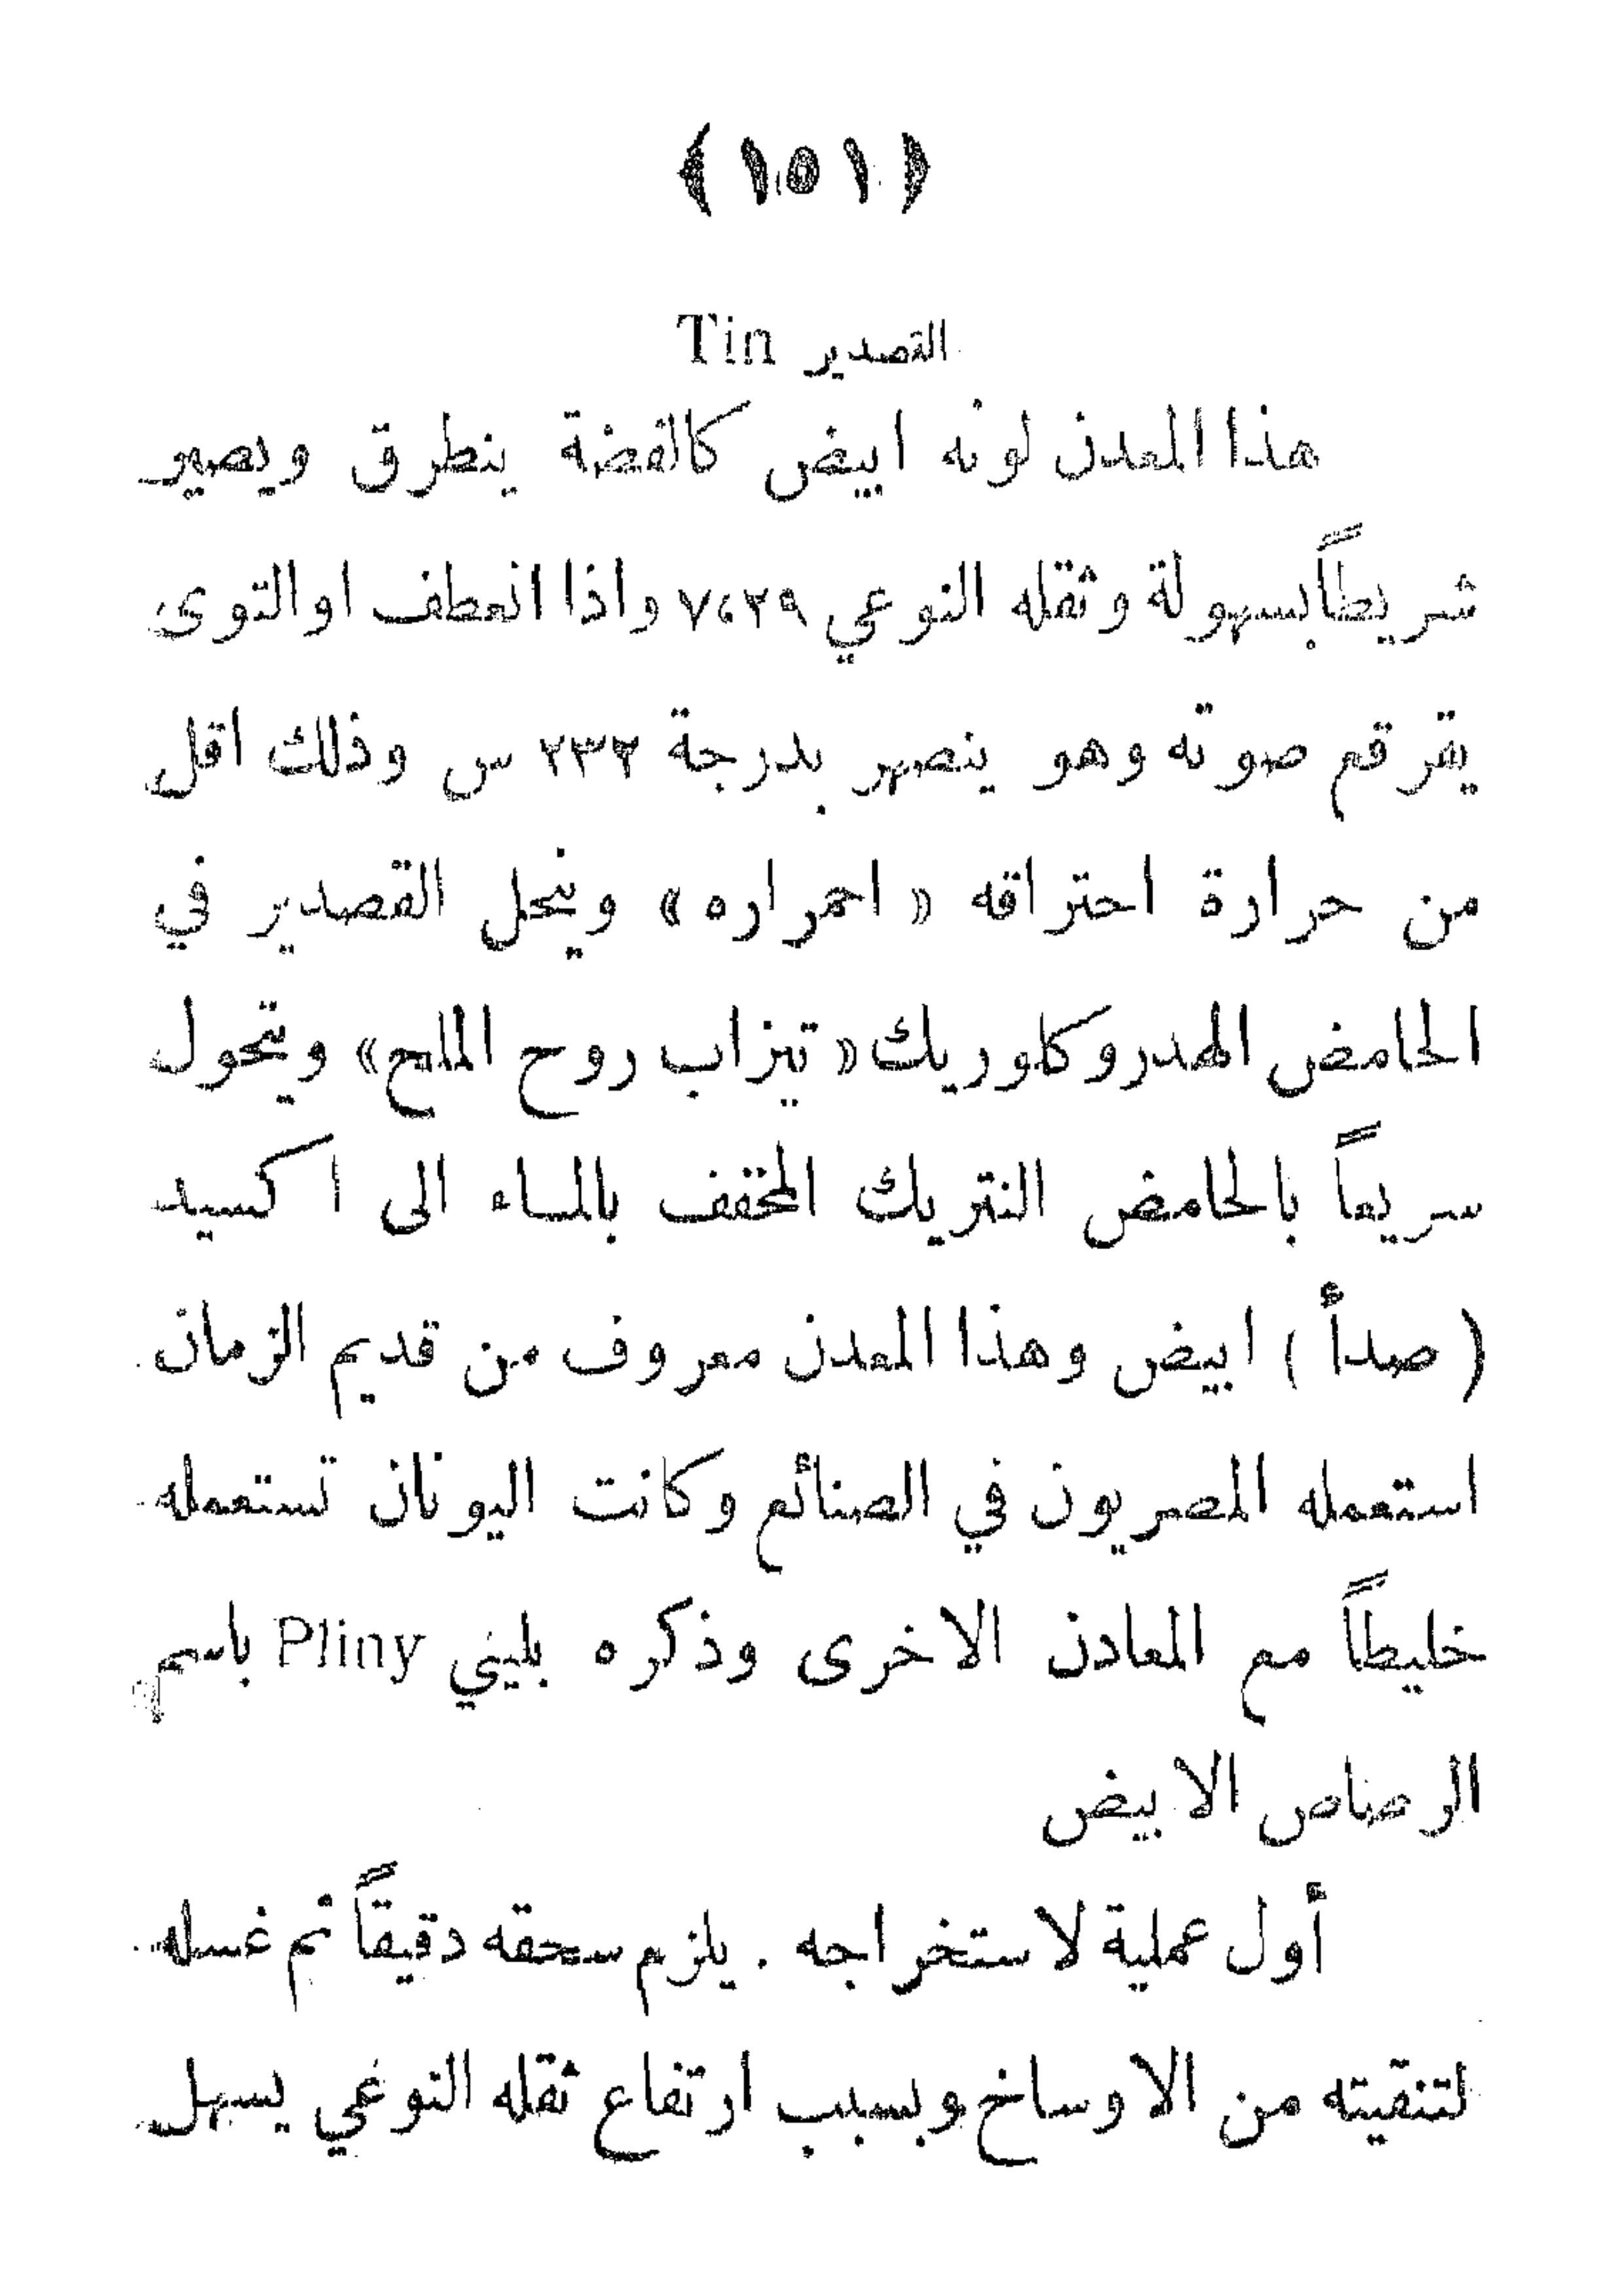 ﴿ ١٥١ ﴾
القصدير Tin
هذا المعدن لونه ابيض كالفضة ينطرق ويصير
شريطاً بسهولة وثقله النوعي ٧،٢٩ واذا انعطف او التوى
يقرقع صوته وهو ينصهر بدرجة ٢٣٢ س وذلك اقل
من حرارة احتراقه « احمراره » وينحل القصدير في
الحامض الهدروكلوريك « تيزاب روح الملح » ويتحول
سريعاً بالحامض النتريك المخفف بالماء الى اكسيد
( صدأ ) ابيض وهذا المعدن معروف من قديم الزمان
استعمله المصريون في الصنائع وكانت اليونان تستعمله
خليطاً مع المعادن الاخرى وذكره بليني Pliny باسم
الرصاص الابيض
أول عملية لاستخراجه . يلزم سحقه دقيقاً ثم غسله
لتنقيته من الاوساخ وبسبب ارتفاع ثقله النوعي يسهل